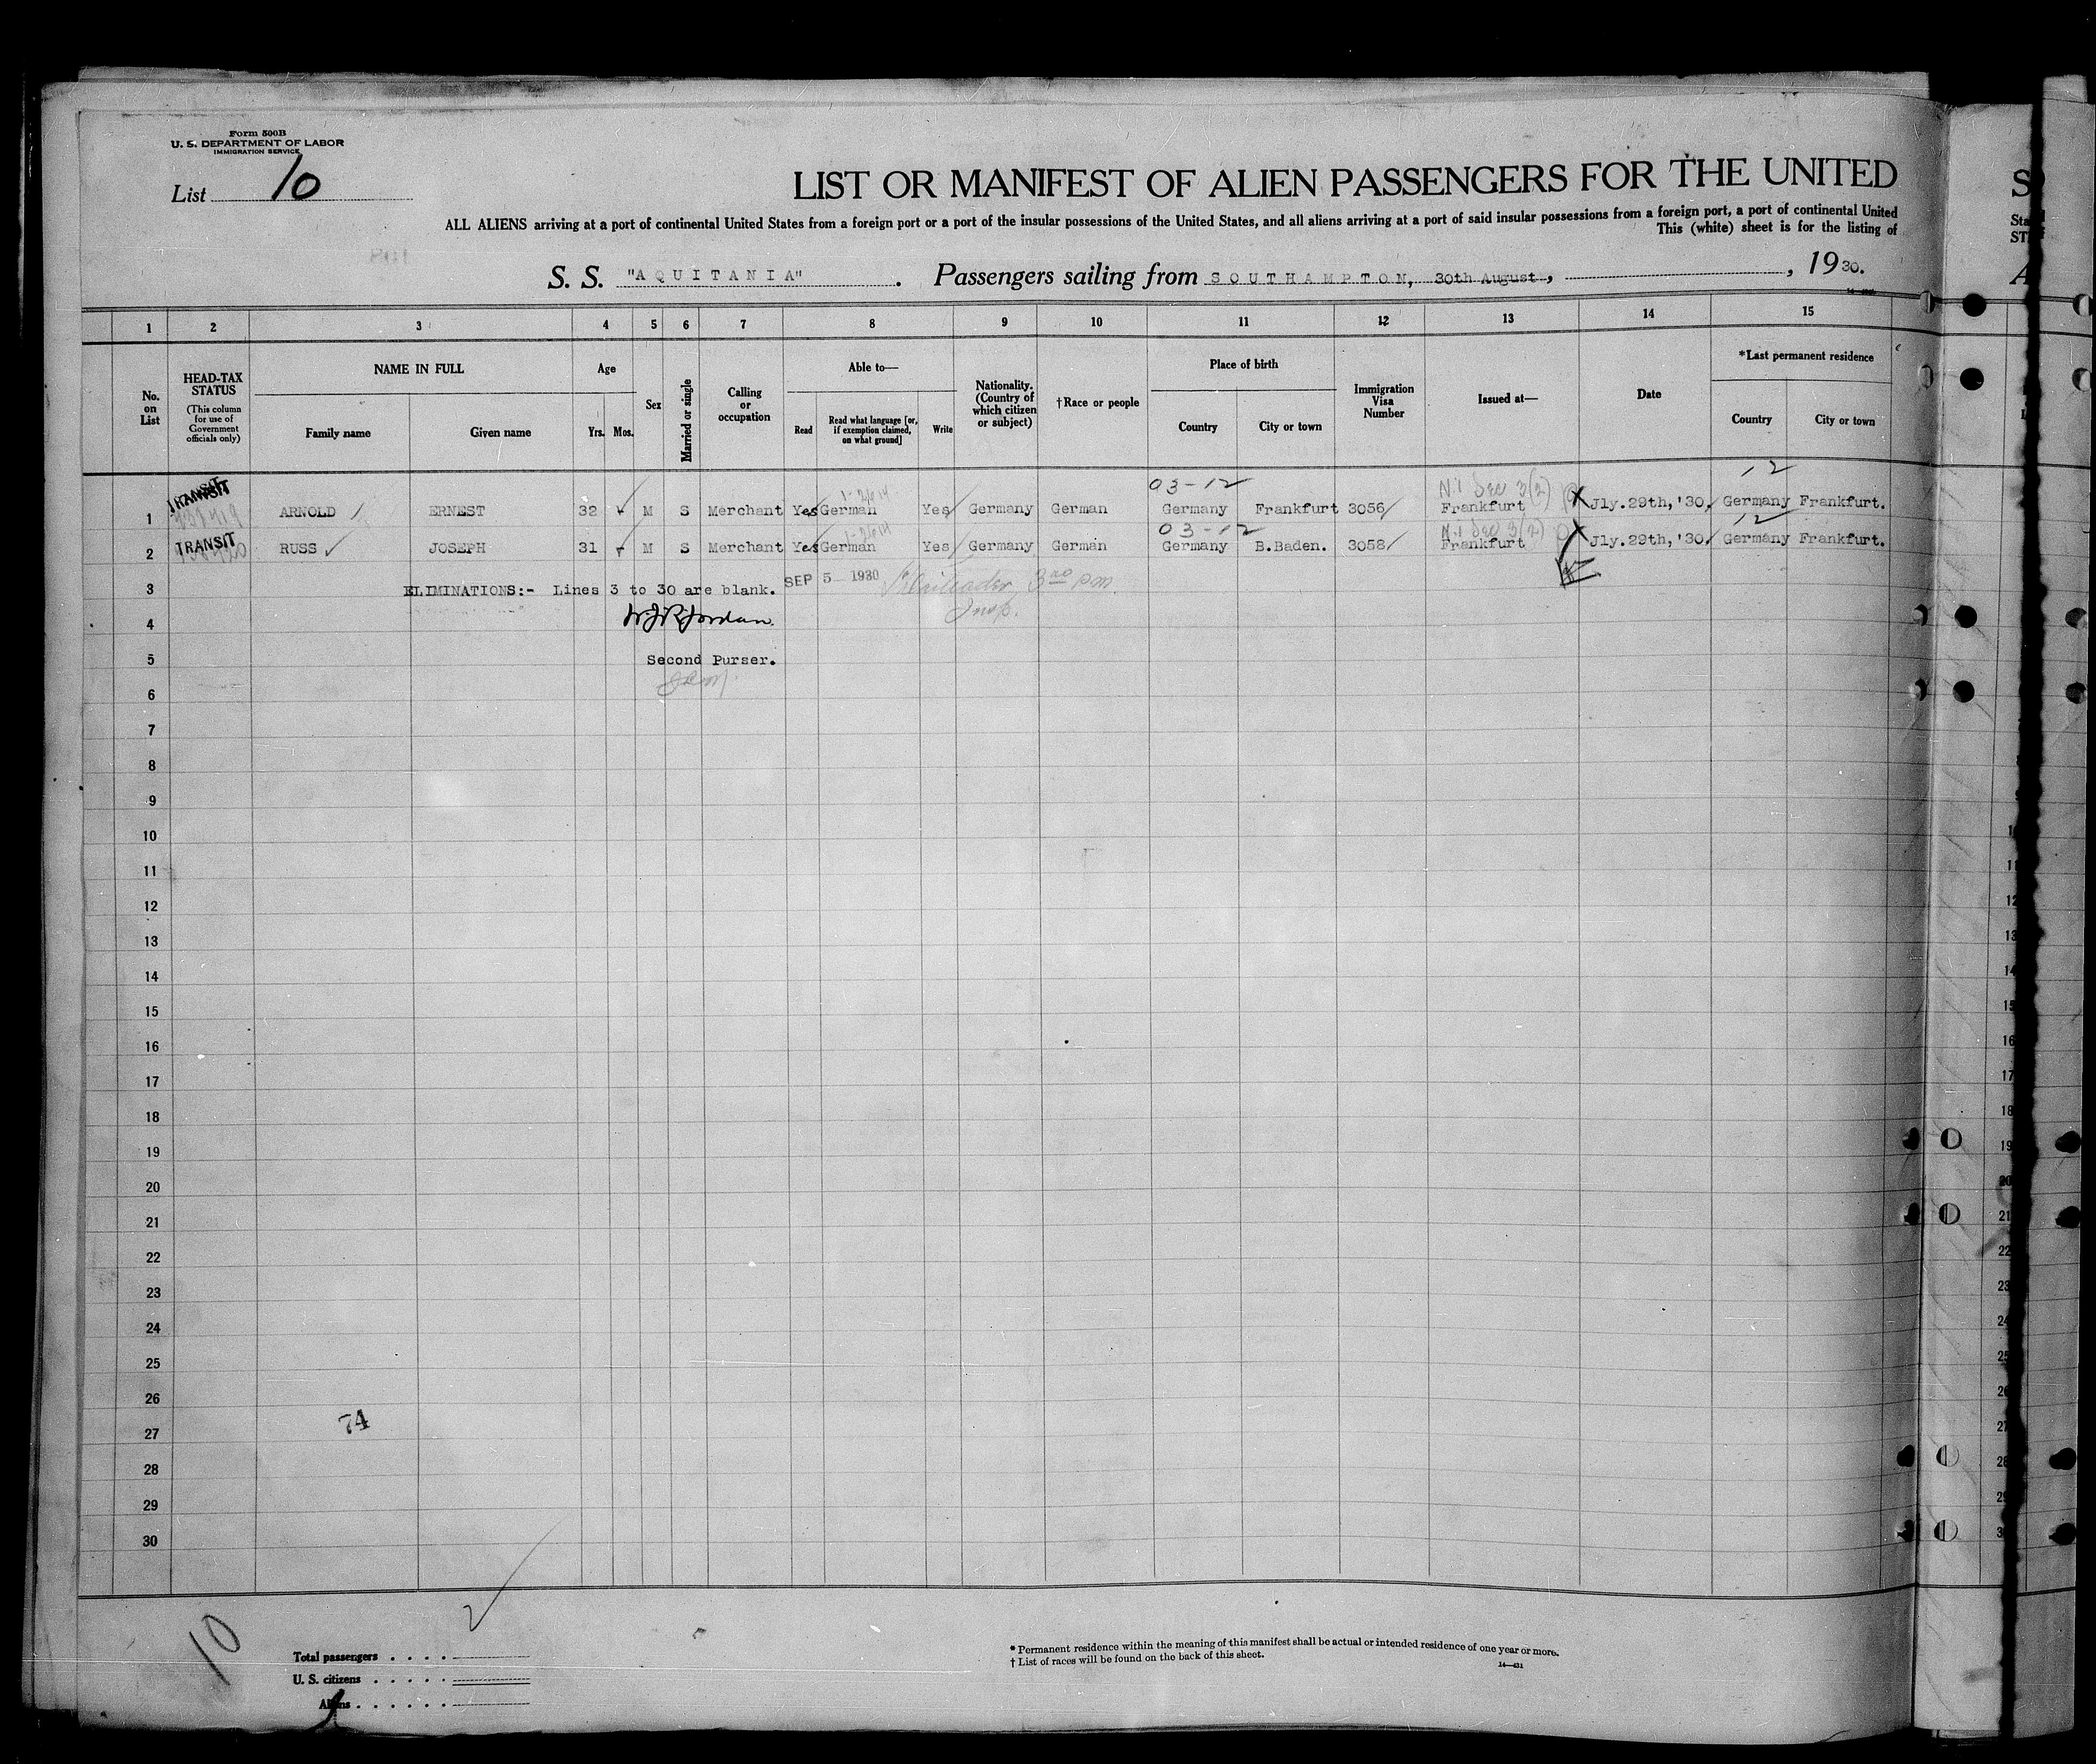 Form 500B
U. S. DEPARTMENT OF LABOR
IMMIGRATION SERVICE
List 10
LIST OR MANIFEST OF ALIEN PASSENGERS FOR THE UNITED
ALL ALIENS arriving at a port of continental United States from a foreign port or a port of the insular possessions of the United States, and all aliens arriving at a port of said insular possessions from a foreign port, a port of continental United
This (white) sheet is for the listing of
S. S. "AQUITANIA". Passengers sailing from SOUTHAMPTON, 30th August, , 1930.
1 2 3 4 5 6 7 8 9 10 11 12 13 14 15
No. on List
HEAD-TAX STATUS
(This column for use of Government officials only)
NAME IN FULL
Family name Given name
Age
Yrs. Mos.
Sex
Married or single
Calling or occupation
Able to—
Read
Read what language [or, if exemption claimed, on what ground]
Write
Nationality. (Country of which citizen or subject)
†Race or people
Place of birth
Country City or town
Immigration Visa Number
Issued at—
Date
*Last permanent residence
Country City or town
03-12 12
1 TRANSIT ARNOLD ERNEST 32 M S Merchant Yes German Yes Germany German Germany Frankfurt 3056 Frankfurt Jly.29th,'30 Germany Frankfurt.
03-12 12
2 TRANSIT RUSS JOSEPH 31 M S Merchant Yes German Yes Germany German Germany B.Baden. 3058 Frankfurt Jly.29th,'30 Germany Frankfurt.
3 ELIMINATIONS:- Lines 3 to 30 are blank. SEP 5 1930
4 Jordan
5 Second Purser.
6
7
8
9
10
11
12
13
14
15
16
17
18
19
20
21
22
23
24
25
26
74
27
28
29
30
10
Total passengers
U. S. citizens
Aliens
* Permanent residence within the meaning of this manifest shall be actual or intended residence of one year or more.
† List of races will be found on the back of this sheet.